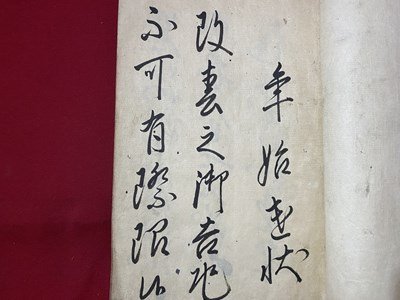 年始之状
改春之御吉兆
不可有際限候